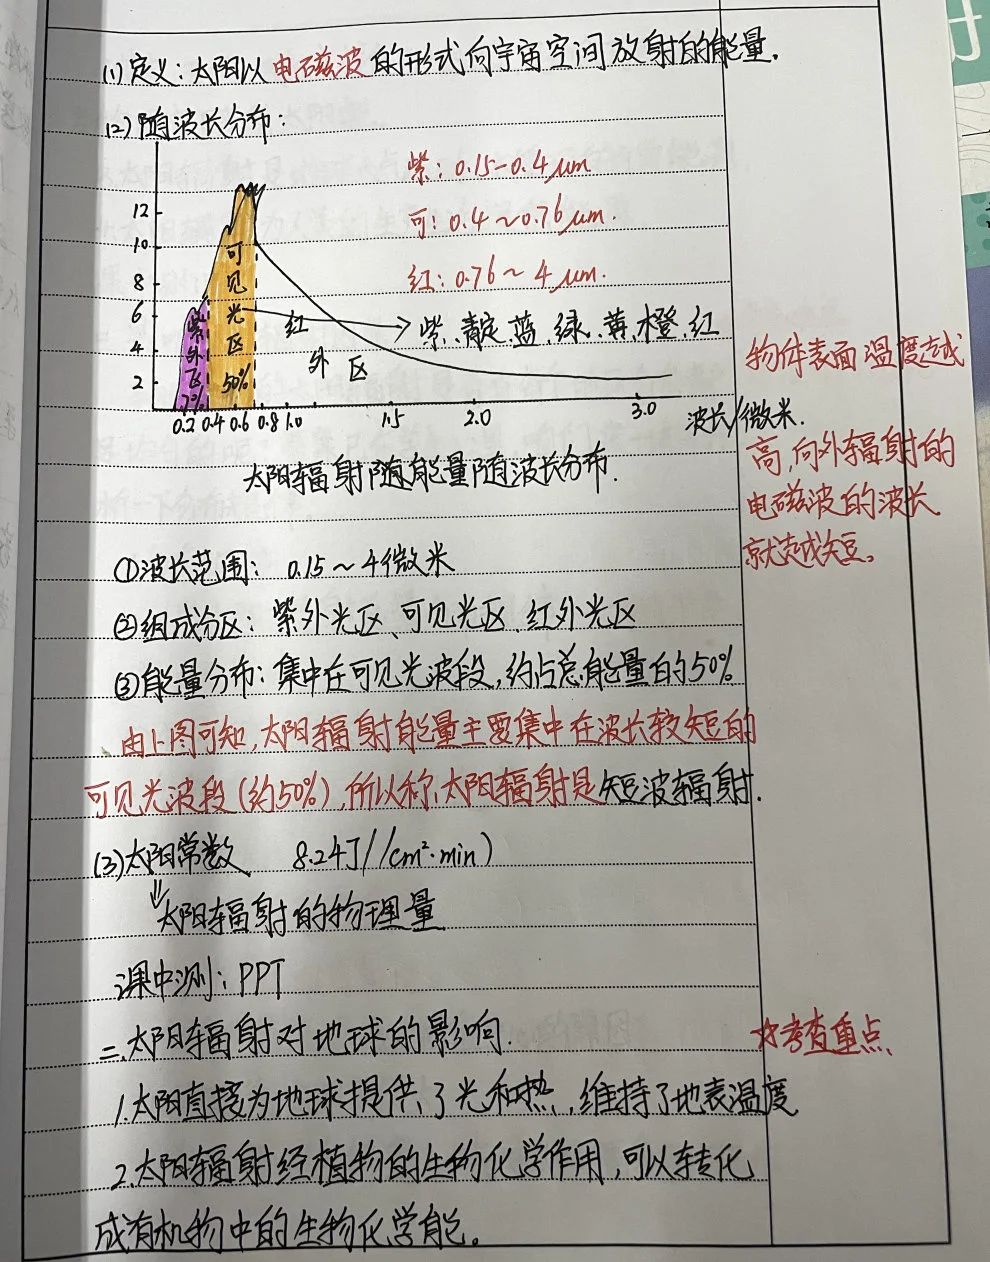 (1)定义：太阳以电磁波的形式向宇宙空间放射的能量.
(2)随波长分布：
紫：0.15-0.4μm
可：0.4～0.76μm.
红：0.76～4μm.
12
10
8
6
4
2
紫外区7%
可见光区50%
红外区
紫、靛、蓝、绿、黄、橙、红
0.2 0.4 0.6 0.8 1.0 1.5 2.0 3.0 波长/微米.
太阳辐射随能量随波长分布.
物体表面温度越
高,向外辐射的
电磁波的波长
就越短。
①波长范围：0.15～4微米
②组成分区：紫外光区、可见光区、红外光区
③能量分布：集中在可见光波段,约占总能量的50%
由上图可知,太阳辐射能量主要集中在波长较短的
可见光波段(约50%),所以称,太阳辐射是短波辐射.
(3)太阳常数 8.24J/(cm²·min)
⇓
太阳辐射的物理量
课中测：PPT
二.太阳辐射对地球的影响.
☆考查重点
1.太阳直接为地球提供了光和热,维持了地表温度
2.太阳辐射经植物的生物化学作用,可以转化
成有机物中的生物化学能。